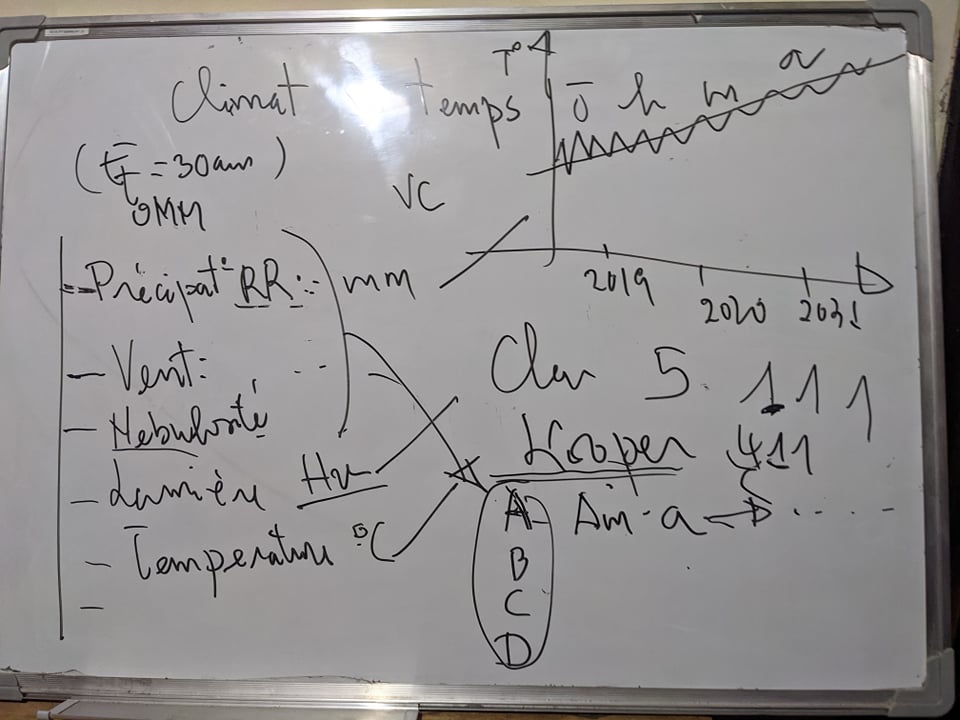 Climat temps
(t = 30 ans)
OMM
VC
T°
ō h m a
2019
2020
2031
- Précipat° RR : mm
- Vent :
- Nébulosité
- Lumière Hv
- Température °C
-
Class 5.
111
Kooper 411
A Am a → . . . .
B
C
D